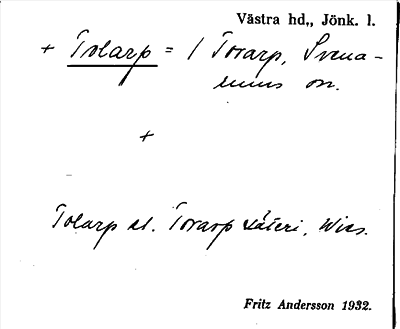 Västra hd., Jönk. l.
+ Tolarp = / Torarp, Svena-
rums sn.
+
Tolarp el. Torarp säteri, Wies.
Fritz Andersson 1932.